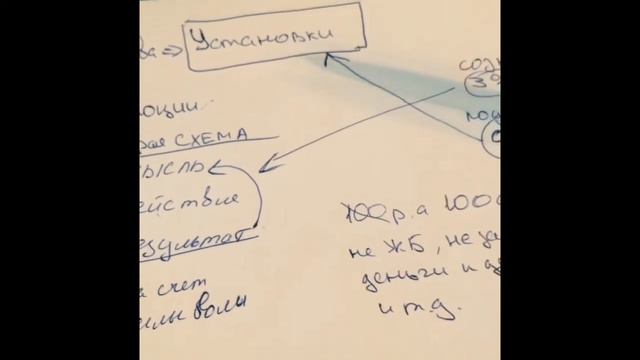 ва => Установки
оции
рая СХЕМА
ЫСЛЬ
ействие
езультат
а счет
силы воли
созн
3%
100р. а 1000
не ЖБ, не за
деньги и
и т.д.